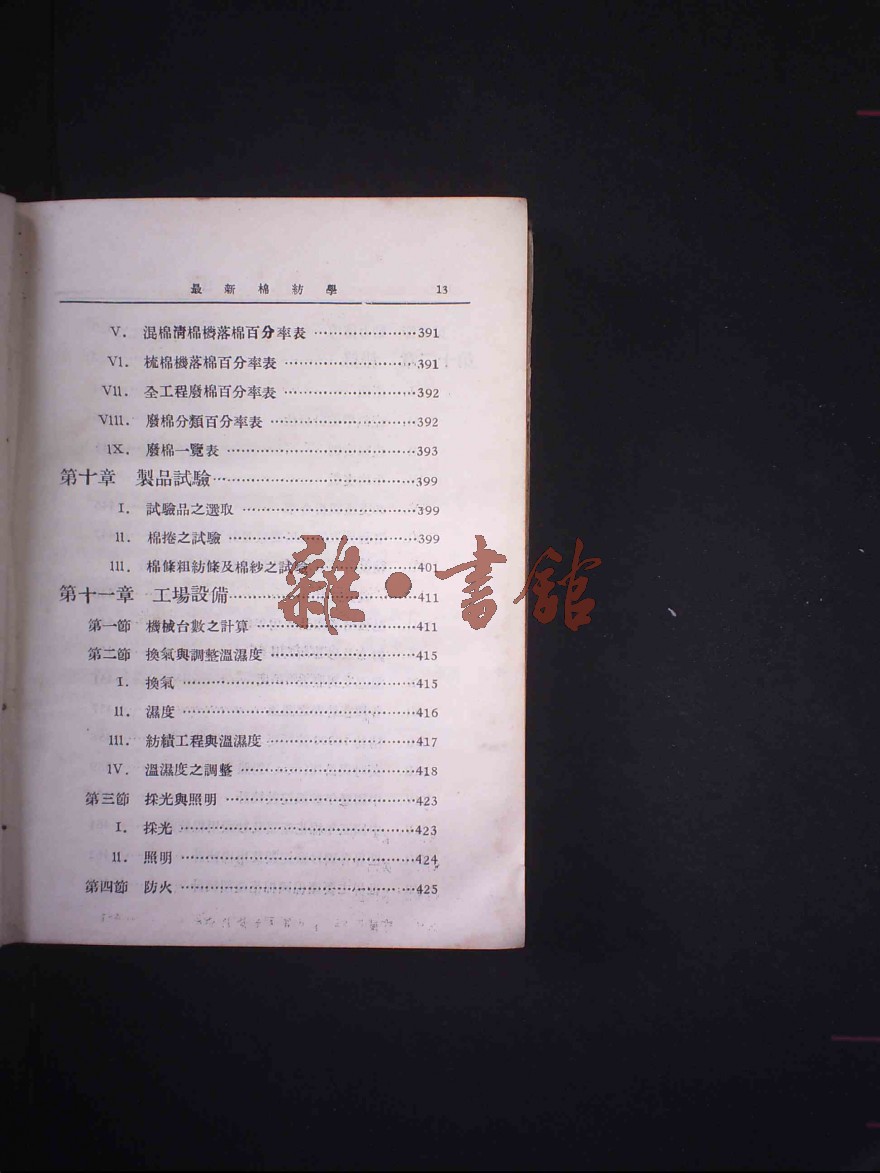 最新棉紡學 13
V. 混棉清棉機落棉百分率表 ……………… 391
VI. 梳棉機落棉百分率表 ……………… 391
VII. 全工程廢棉百分率表 ……………… 392
VIII. 廢棉分類百分率表 ……………… 392
IX. 廢棉一覽表 ……………… 393
第十章 製品試驗 ……………… 399
I. 試驗品之選取 ……………… 399
II. 棉捲之試驗 ……………… 399
III. 棉條粗紡條及棉紗之試驗 ……………… 401
雜·書館
第十一章 工場設備 ……………… 411
第一節 機械台數之計算 ……………… 411
第二節 換氣與調整溫濕度 ……………… 415
I. 換氣 ……………… 415
II. 濕度 ……………… 416
III. 紡績工程與溫濕度 ……………… 417
IV. 溫濕度之調整 ……………… 418
第三節 採光與照明 ……………… 423
I. 採光 ……………… 423
II. 照明 ……………… 424
第四節 防火 ……………… 425